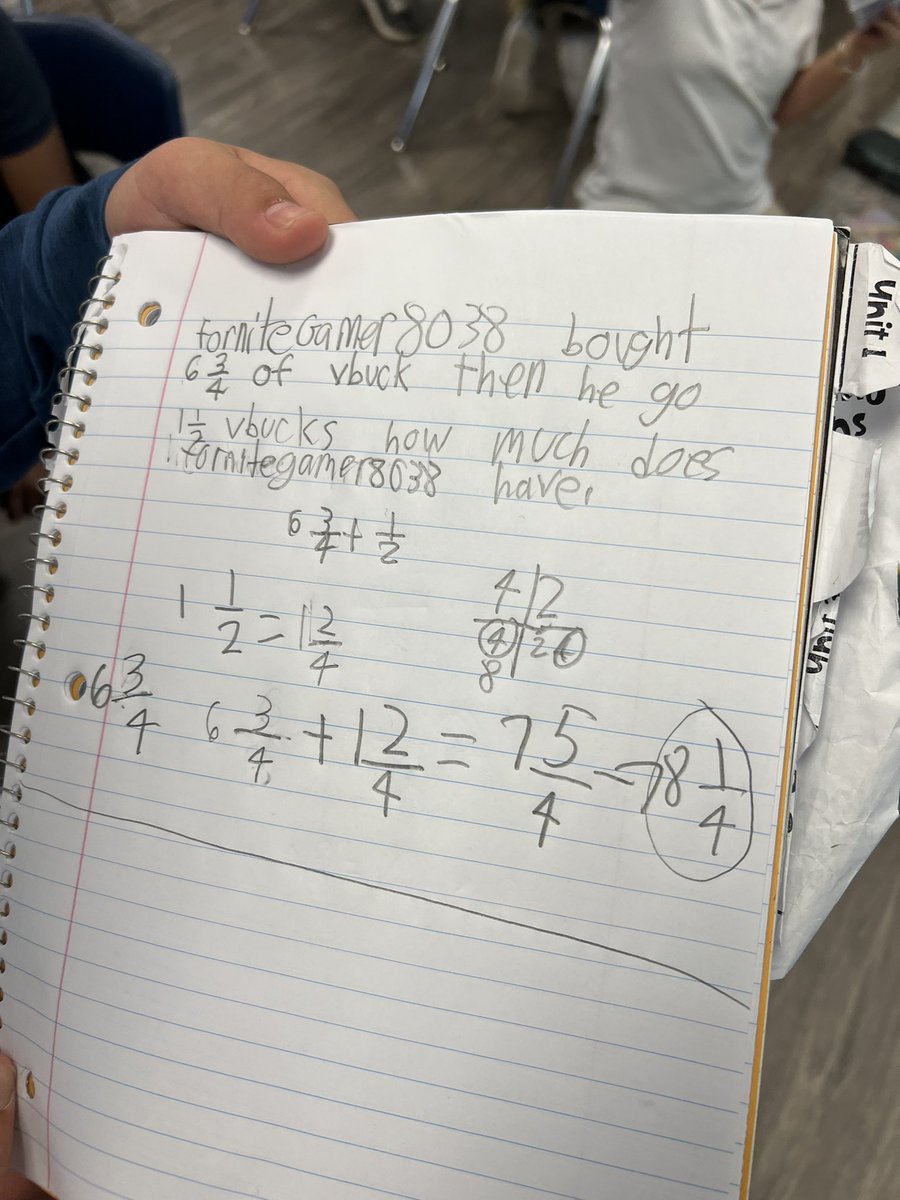 fornitegamer8038 bought
6 3/4 of vbuck then he go
1 1/2 vbucks how much does
fornitegamer8038 have.
6 3/4 + 1/2
1 1/2 = 1 2/4
4 | 2
4 | 2 4
8
6 3/4
6 3/4 + 1 2/4 = 7 5/4 = 8 1/4
Unit 1